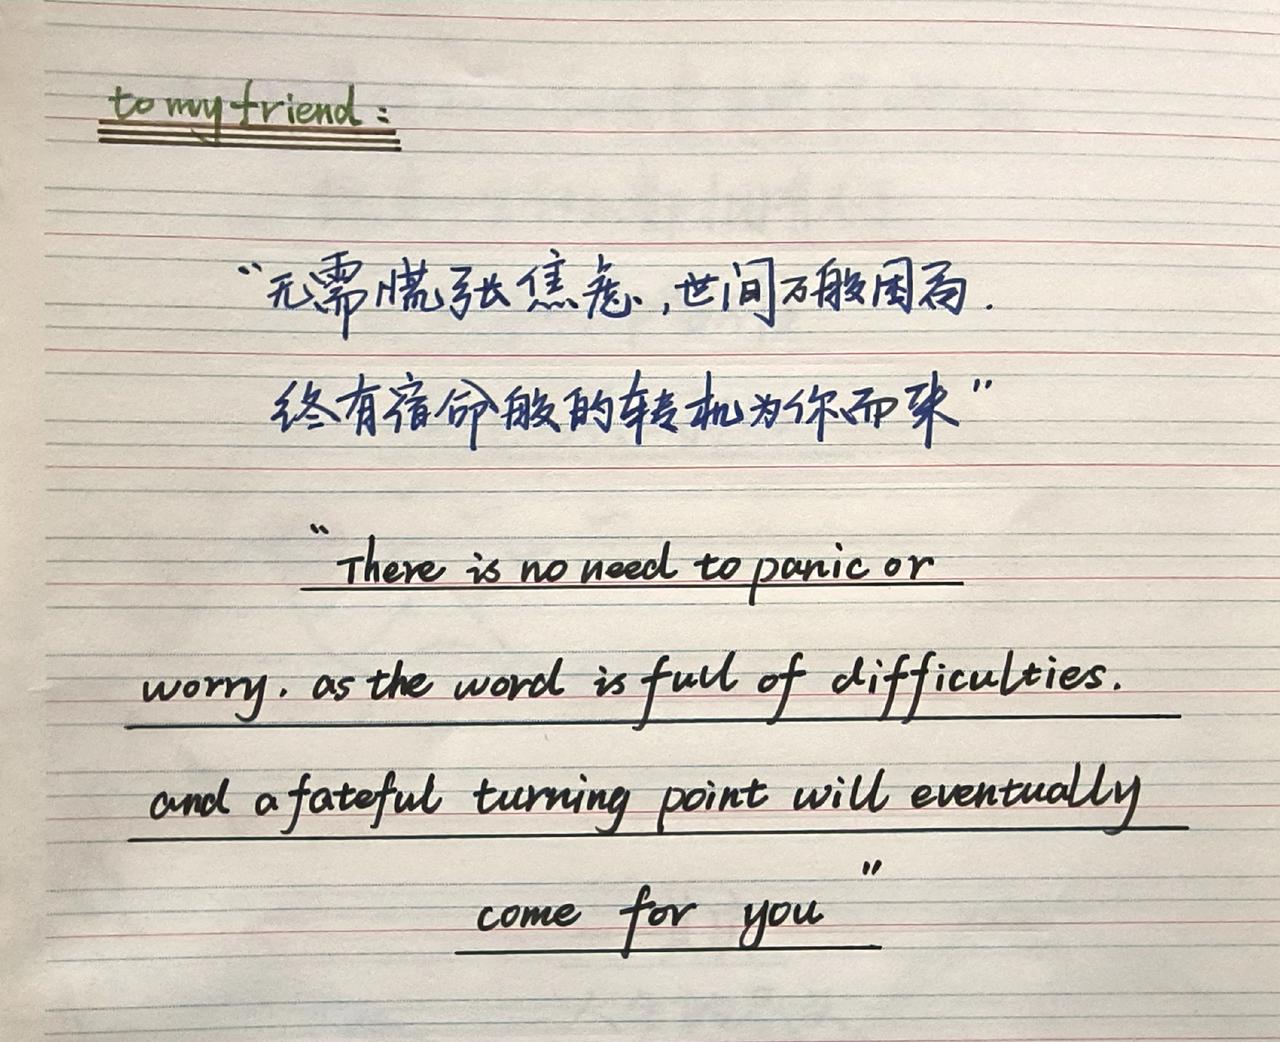 to my friend:
“无需慌张焦虑,世间万般困局.
终有宿命般的转机为你而来”
“There is no need to panic or
worry. as the word is full of difficulties.
and a fateful turning point will eventually
come for you”